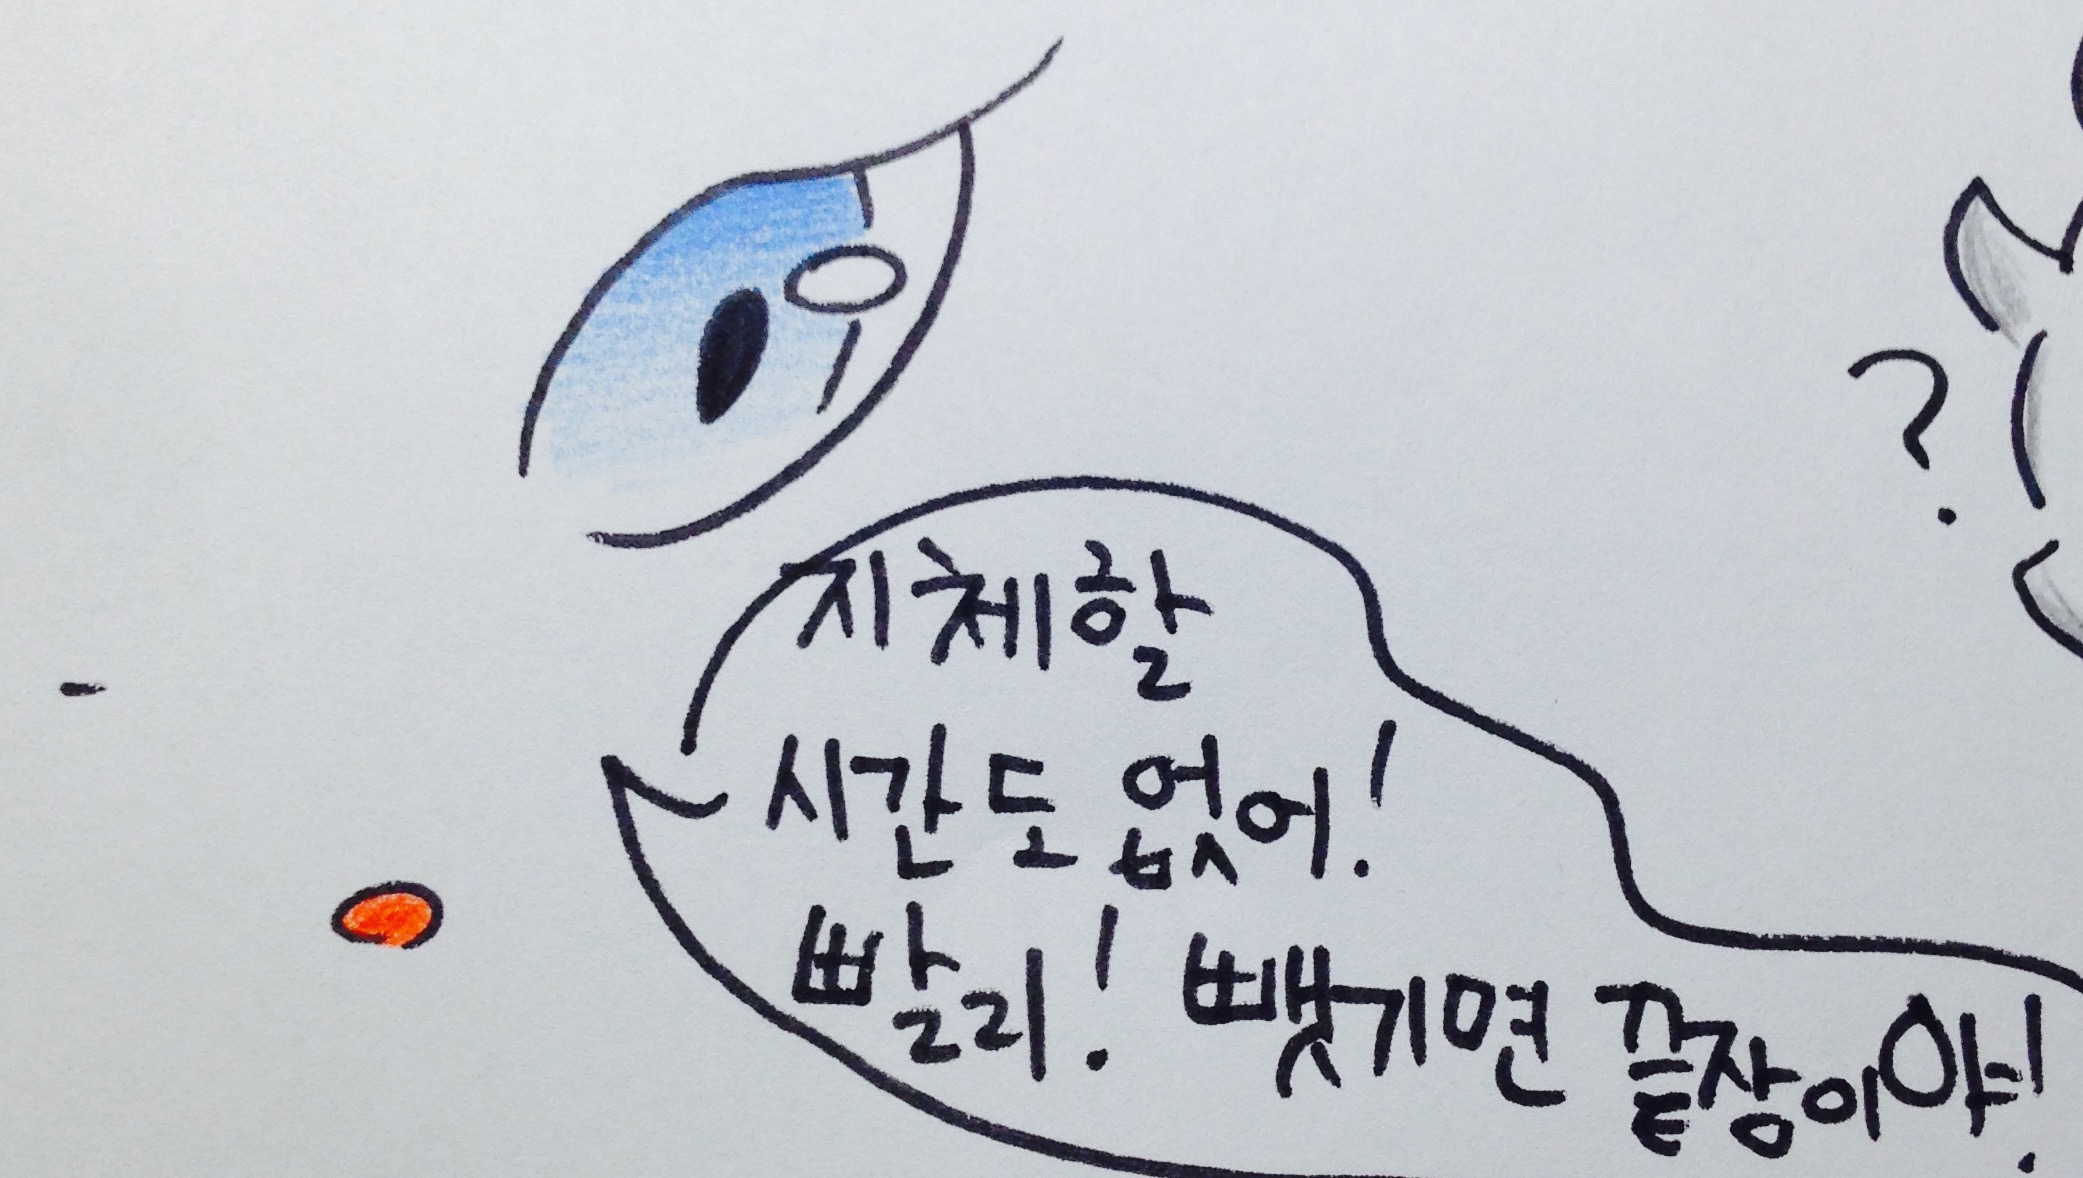 지체할
시간도 없어!
빨리! 뺏기면 끝장이야!
?